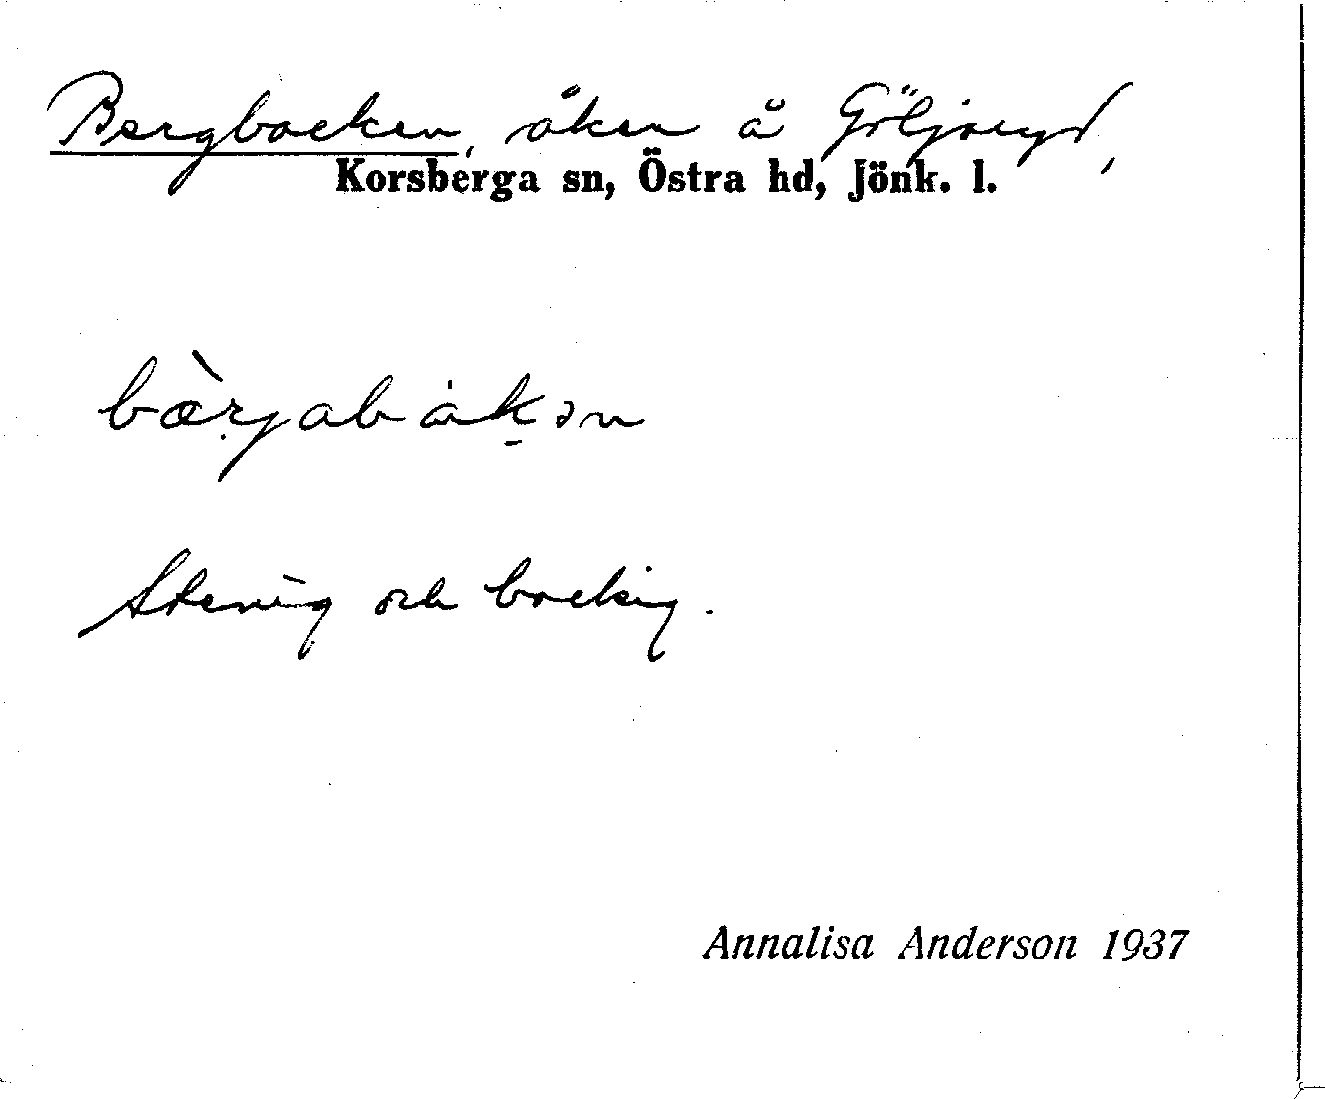 Bergbacken, åker å Göljeryd,
Korsberga sn, Östra hd, Jönk. l.
bærjabakən
Stenig och backig.
Annalisa Anderson 1937